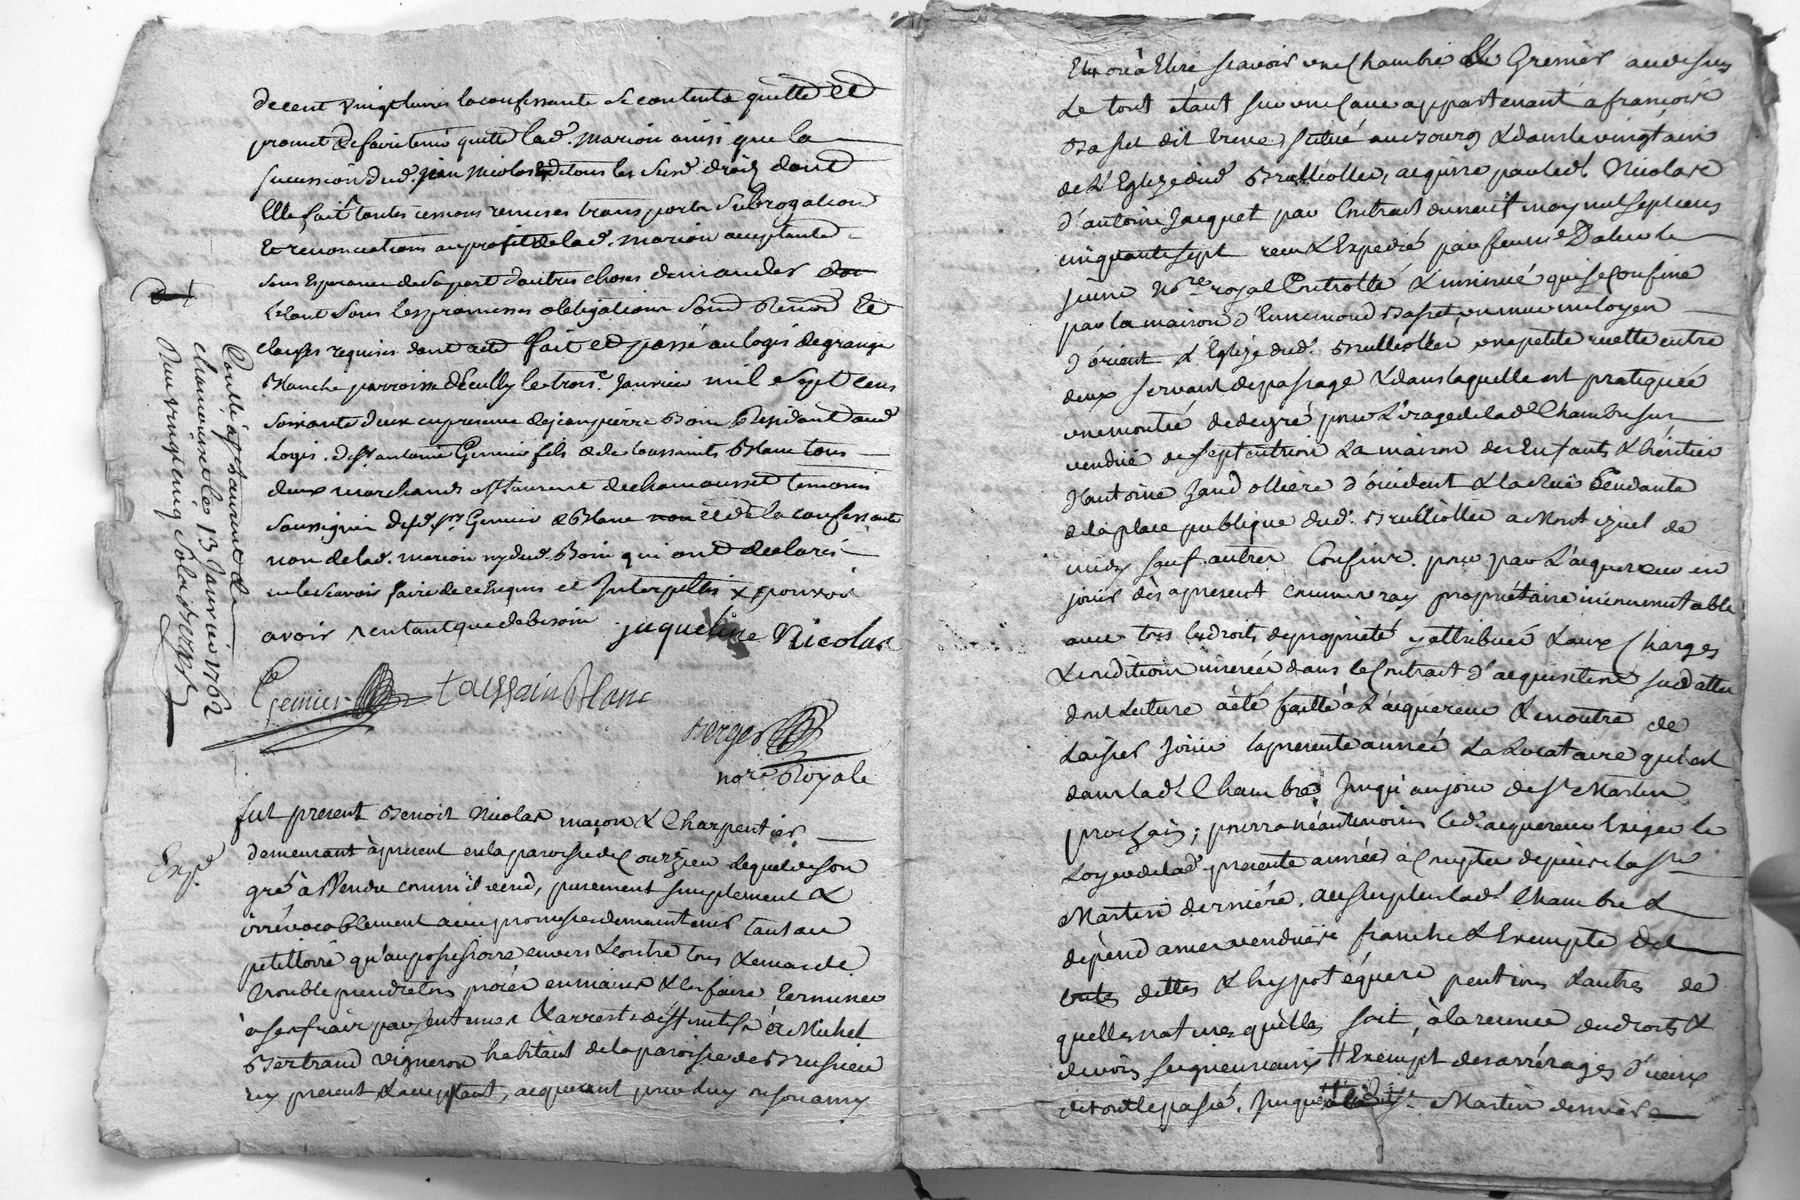 de cent vingt livres la confessante se contente quitte et
promet de faire tenir quitte lad. marion ainsi que la
sucession dud. jean Nicolas et de tous les susd. droits dont
Elle fait toutes cessions remises transports subrogations
et renonciations au profit de lad. marion acceptante
sans Esperance de sa part d'autres choses demander
Le tout sous les promesses obligations Renon. et
clauses requises dont acte fait et passé au logis de grange
Blanche parroisse d'Ecully le trois.e Janvier mil sept cens
soixante deux en presence de jean pierre Boin Residant aud.
Logis. de sr antoine Grenier fils & de toussaints Blanc tous
deux marchands a st Laurent de chamousset temoins
soussignés lesd. srs Grenier & Blanc et de la confessante
non de lad. marion ny dud. Boin qui ont declarés
ne le scavoir faire de ce Enquis et Interpellés x pouvoir
avoir en tant que de besoin jaqueline Nicolas
Grenier toussain Blanc
Berger
no.re Royale
Conllé à st Laurent de
chamousset le 13 Janvier 1762
Berger
fut présent Benoit Nicolas maçon & Charpentier
Exp.é
demeurant à present en la paroisse de Courzieu lequel de son
gré à Vendu comm'il vend, purement simplement &
irrévocablement avec promesse de maintenir tant au
petittoire qu'au possessoire envers & contre tous & en cas de
trouble prendre tous procés en mains & les faire terminer
à ses frais par sentences & arrests déffinitifs à Michel
Bertrand vigneron habitant de la paroisse de Brussieu
icy present & acceptant, acquerant pour luy ou son amy
Elu ou à Elire scavoir une Chambre & Grenier au dessus
Le tout étant sur une Cave appartenant a françois
Basset dit situé au bourg & dans le vingtain
de L'Eglize dud. Brulliolles, acquise par led. Nicolas
d'antoine Jacquet par Contract du neuf may mil sept cens
cinquante sept receu & Expedié par feu me
jeune No.re royal Controllé & insinué qui se confine
par la maison d'Ennemond Basset, un mur mitoyen
d'orient & L'Eglize dud. Brulliolles une petite ruette entre
deux servant de passage & dans laquelle est pratiquée
une montée de degré pour L'usage de lad. Chambre sus
vendue de septentrion La maison des Enfants & héritiers
d'antoine d'occident & la rue tendante
de la place publique dud. Brulliolles a Montizuel de
midy sauf autres Confins. pour par L'acquereur en
jouir dès apresent comme vray propriétaire incommutable
avec tous les droits de propriété y attribués & aux Charges
& Conditions inserées dans le Contract d'acquisition susd datté
dont Lecture à été faitte à L'acquereur & en outre de
Laisser jouir la presente année La Locataire qui est
dans lad. Chambre jusqu'au jour de st Martin
prochain; pourra néantmoins led. acquereur Exiger le
Loyer de lad. presente année à compter depuis la st
Martin derniére. au surplus lad. Chambre &
dépendances vendues franche & Exempte de
toutes dettes & hypotéques pentions & autres de
quelles natures qu'elles soit, à la reserve des droits &
devoirs seigneuriaux # Exempt des arrérages d'iceux
de tout le passé. Jusqu'à la st Martin derniére